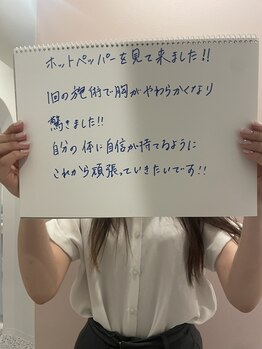 ホットペッパーを見て来ました!!
1回の施術で胸がやわらかくなり
驚きました!!
自分の体に自信が持てるように
これから頑張っていきたいです!!